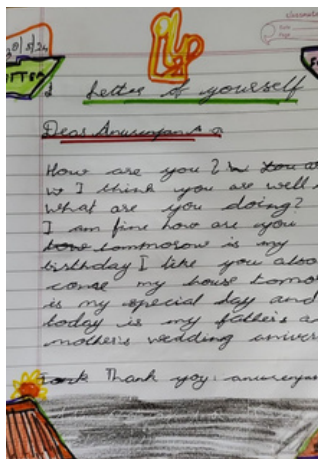 classmate
Date
Page
Letter of yourself
Dear Anurenjan
How are you?
I think you are well
what are you doing?
I am fine how are you
tommorow is my
birthday I like you also
come my house tomo
is my special day and
today is my father's a
mother's wedding univer
Thank yoy: anurenjan